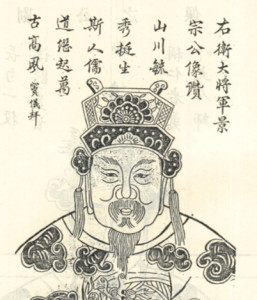 右衛大將軍景
宗公像讚
山川毓
秀挺生
斯人儒
道懋起萬
古高風 竇儀拜